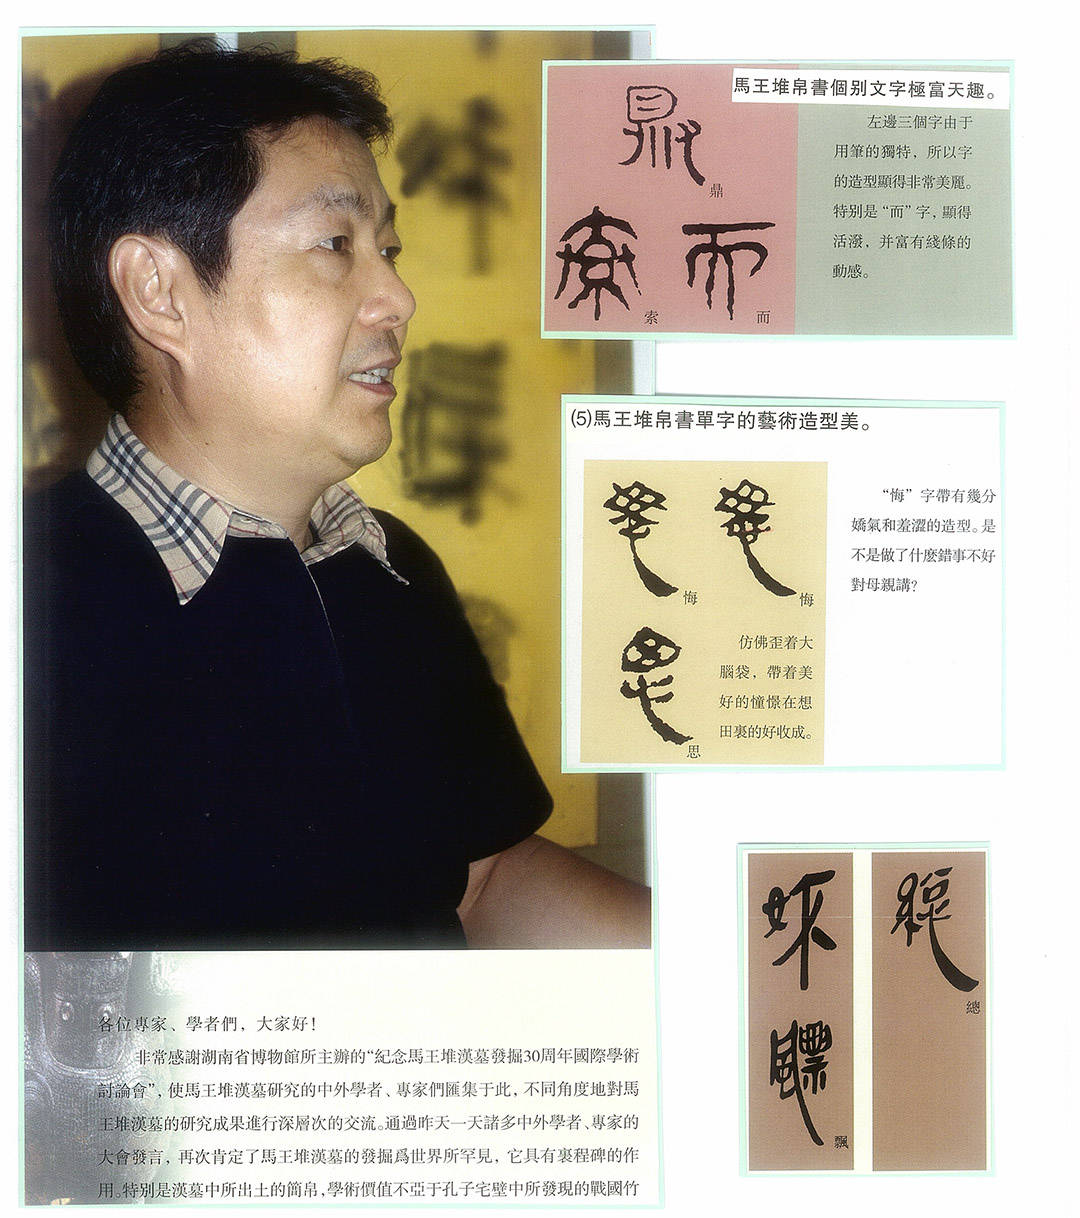 馬王堆帛書個别文字極富天趣。
左邊三個字由于
用筆的獨特，所以字
的造型顯得非常美麗。
特别是“而”字，顯得
活潑，并富有綫條的
動感。
鼎
索
而
(5)馬王堆帛書單字的藝術造型美。
“悔”字帶有幾分
嬌氣和羞澀的造型。是
不是做了什麽錯事不好
對母親講？
悔
悔
仿佛歪着大
腦袋，帶着美
好的憧憬在想
田裏的好收成。
思
總
飄
各位專家、學者們，大家好！
非常感謝湖南省博物館所主辦的“紀念馬王堆漢墓發掘30周年國際學術
討論會”，使馬王堆漢墓研究的中外學者、專家們匯集于此，不同角度地對馬
王堆漢墓的研究成果進行深層次的交流。通過昨天一天諸多中外學者、專家的
大會發言，再次肯定了馬王堆漢墓的發掘爲世界所罕見，它具有裏程碑的作
用。特别是漢墓中所出土的簡帛，學術價值不亞于孔子宅壁中所發現的戰國竹